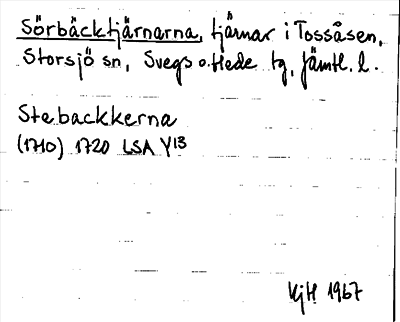 Sörbäcktjärnarna, tjärnar i Tossåsen,
Storsjö sn, Svegs o. Hede tg, Jämtl. l.
Stebackkerna
(1710) 1720 LSA Y13
KjH 1967